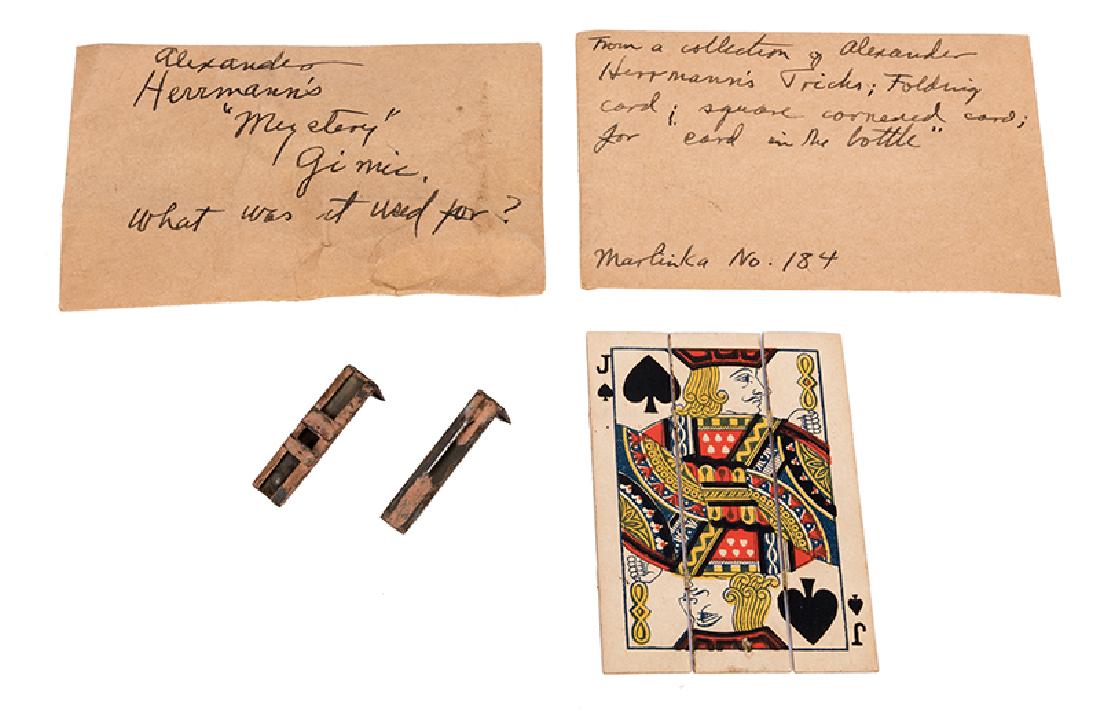 Alexander
Herrmann's
"Mystery"
Gimic,
what was it used for?
From a collection of Alexander
Herrmann's Tricks; Folding
card; square cornered card;
for card in the bottle"
Martinka No. 184
J
J